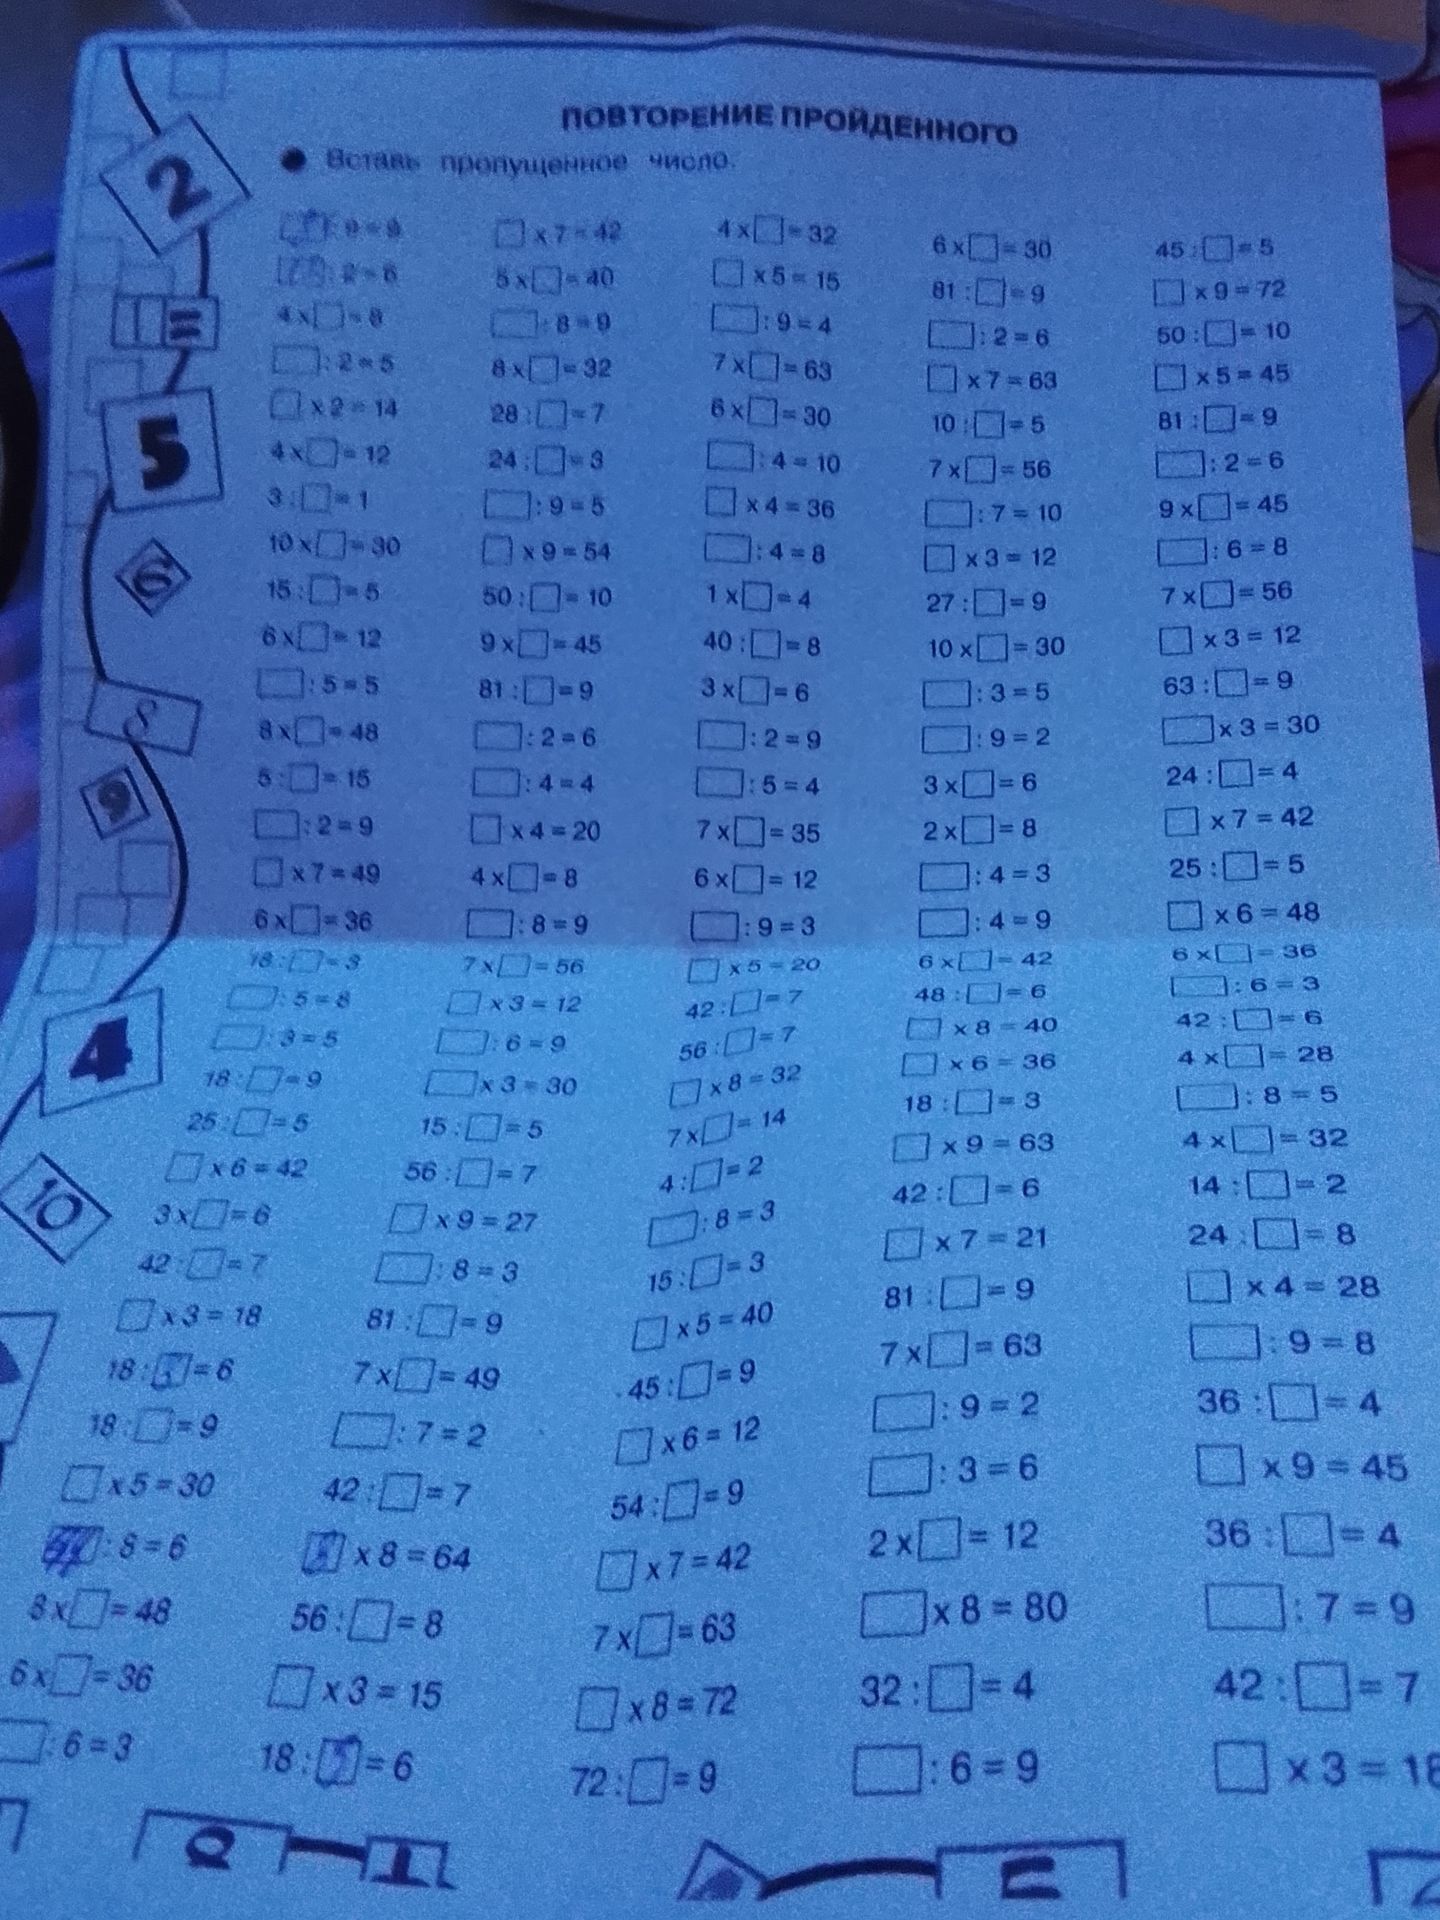 ПОВТОРЕНИЕ ПРОЙДЕННОГО
● Вставь пропущенное число.
2
=
5
6
8
9
4
10
□ : 9 = 9
□ : 2 = 6
4 x □ = 8
□ : 2 = 5
□ x 2 = 14
4 x □ = 12
3 : □ = 1
10 x □ = 30
15 : □ = 5
6 x □ = 12
□ : 5 = 5
8 x □ = 48
5 : □ = 15
□ : 2 = 9
□ x 7 = 49
6 x □ = 36
18 : □ = 3
□ : 5 = 8
□ : 3 = 5
18 : □ = 9
25 : □ = 5
□ x 6 = 42
3 x □ = 6
42 : □ = 7
□ x 3 = 18
18 : 3 = 6
18 : □ = 9
□ x 5 = 30
□ : 8 = 6
8 x □ = 48
6 x □ = 36
□ : 6 = 3
□ x 7 = 42
5 x □ = 40
□ : 8 = 9
8 x □ = 32
28 : □ = 7
24 : □ = 3
□ : 9 = 5
□ x 9 = 54
50 : □ = 10
9 x □ = 45
81 : □ = 9
□ : 2 = 6
□ : 4 = 4
□ x 4 = 20
4 x □ = 8
□ : 8 = 9
7 x □ = 56
□ x 3 = 12
□ : 6 = 9
□ x 3 = 30
15 : □ = 5
56 : □ = 7
□ x 9 = 27
□ : 8 = 3
81 : □ = 9
7 x □ = 49
□ : 7 = 2
42 : □ = 7
8 x 8 = 64
56 : □ = 8
□ x 3 = 15
18 : □ = 6
4 x □ = 32
□ x 5 = 15
□ : 9 = 4
7 x □ = 63
6 x □ = 30
□ : 4 = 10
□ x 4 = 36
□ : 4 = 8
1 x □ = 4
40 : □ = 8
3 x □ = 6
□ : 2 = 9
□ : 5 = 4
7 x □ = 35
6 x □ = 12
□ : 9 = 3
□ x 5 = 20
42 : □ = 7
56 : □ = 7
□ x 8 = 32
7 x □ = 14
4 : □ = 2
□ : 8 = 3
15 : □ = 3
□ x 5 = 40
45 : □ = 9
□ x 6 = 12
54 : □ = 9
□ x 7 = 42
7 x □ = 63
□ x 8 = 72
72 : □ = 9
6 x □ = 30
81 : □ = 9
□ : 2 = 6
□ x 7 = 63
10 : □ = 5
7 x □ = 56
□ : 7 = 10
□ x 3 = 12
27 : □ = 9
10 x □ = 30
□ : 3 = 5
□ : 9 = 2
3 x □ = 6
2 x □ = 8
□ : 4 = 3
□ : 4 = 9
6 x □ = 42
48 : □ = 6
□ x 8 = 40
□ x 6 = 36
18 : □ = 3
□ x 9 = 63
42 : □ = 6
□ x 7 = 21
81 : □ = 9
7 x □ = 63
□ : 9 = 2
□ : 3 = 6
2 x □ = 12
□ x 8 = 80
32 : □ = 4
□ : 6 = 9
45 : □ = 5
□ x 9 = 72
50 : □ = 10
□ x 5 = 45
81 : □ = 9
□ : 2 = 6
9 x □ = 45
□ : 6 = 8
7 x □ = 56
□ x 3 = 12
63 : □ = 9
□ x 3 = 30
24 : □ = 4
□ x 7 = 42
25 : □ = 5
□ x 6 = 48
6 x □ = 36
□ : 6 = 3
42 : □ = 6
4 x □ = 28
□ : 8 = 5
4 x □ = 32
14 : □ = 2
24 : □ = 8
□ x 4 = 28
□ : 9 = 8
36 : □ = 4
□ x 9 = 45
36 : □ = 4
□ : 7 = 9
42 : □ = 7
□ x 3 = 18